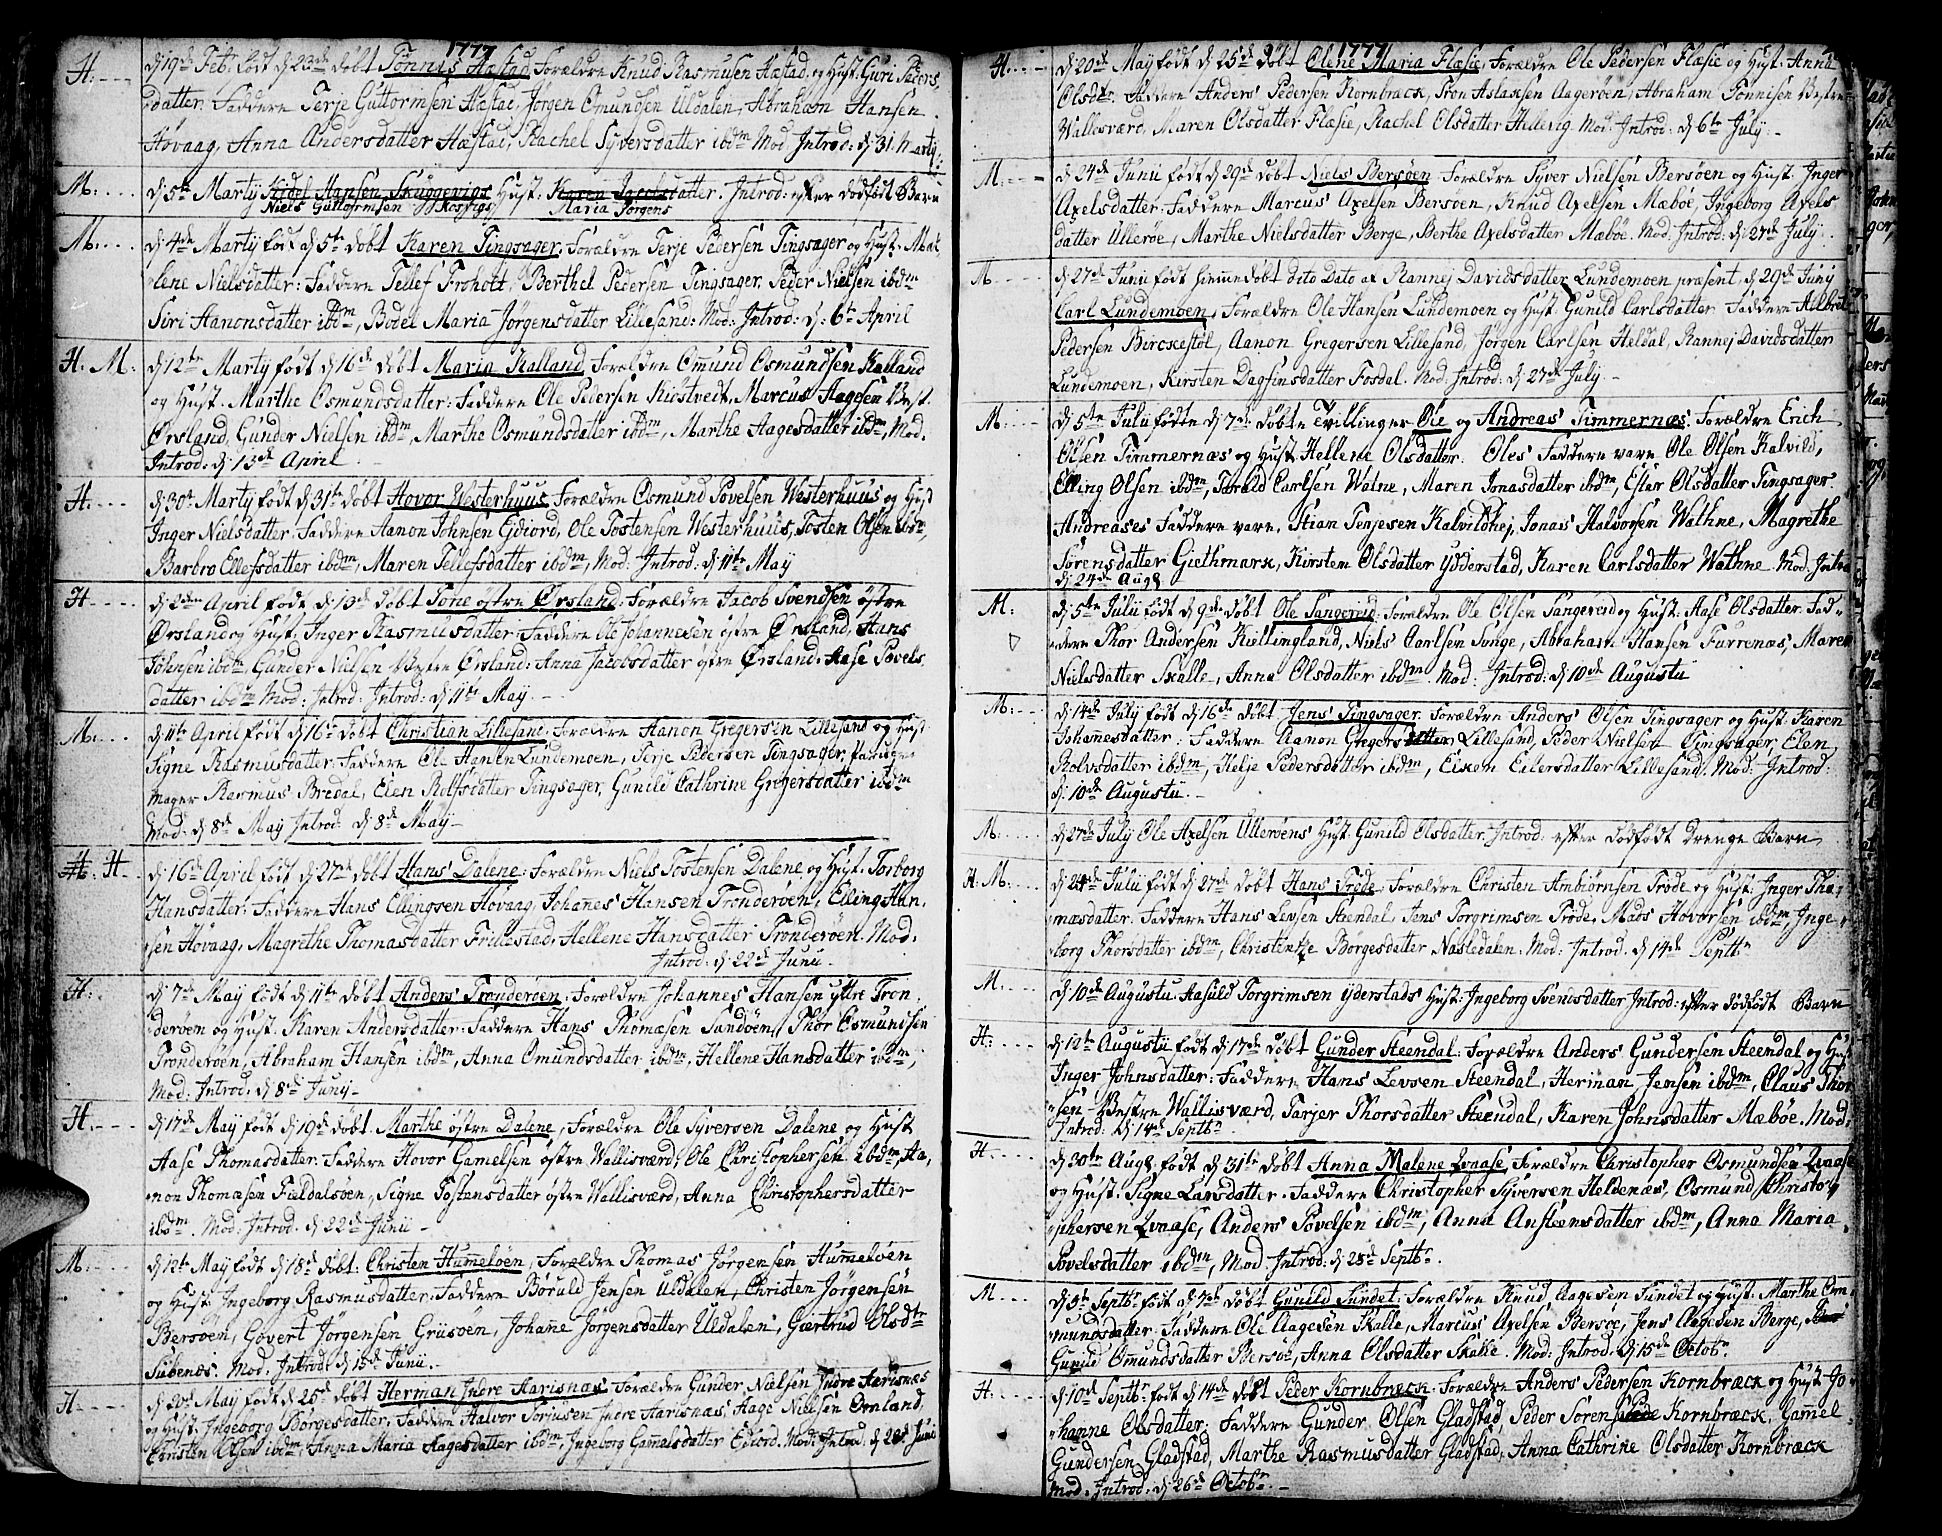 1777
H: d: 19de Febr: født d: 23de døbt Tønnis Hæstad, Forældre Knud Rasmusen Hæstad, og Hust: Guri Peders
datter. Faddere Terje Guttormsen Hæstad, Jørgen Omundsen Uldalen, Abraham Hansen
Hovaag, Anna Andersdatter Hæstad, Rachel Syversdatter ibdm Mod: Introd: d: 31: Marty
M: d: 5te Marty Kidel Hansen Skuggevigs Hust: Karen Jacobsdatter. Introd: efter dødfødt Barn
Niels Guttormsen Maria Jørgens
M: d: 4de Marty født d: 5te døbt Karen Tingsager, Forældre Terje Pedersen Tingsager og Hust: Mal
lene Nielsdatter: Faddere Tellef Froholt, Berthel Pedersen Tingsager, Peder Nielsen ibdm
Siri Hanonsdatter ibdm, Bodel Maria Jørgensdatter Lillesand: Mod: Introd: d: 6te April
H: M: d: 12te Marty født d: 16de døbt Maria Kalland Forældre Omund Osmundsen Kalland
og Hust: Marthe Osmundsdatter: Faddere Ole Pedersen Kiøstvedt, Marcus Aagesen Vest.
Ørsland, Gunder Nielsen ibdm, Marthe Osmundsdatter ibdm, Marthe Aagesdatter ibdm, Mod.
Introd: d: 13de April
H: d: 30te Marty født d: 31te døbt Hovor Westerhuus, Forældre Osmund Povelsen Westerhuus og Hust
Inger Nielsdatter: Faddere Aanon Johnsen Eidiord, Ole Tostensen Westerhuus, Tosten Olsen ibdm,
Barbro Ellefsdatter ibdm, Maren Tellefsdatter ibdm, Mod: Introd: d: 11te May
H d: 2den April født d: 13de døbt Tone østre Ørsland: Forældre Jacob Svendsen østre
Ørsland og Hust: Inger Rasmusdatter: Faddere Ole Johannesen østre Ørsland, Hans
Johnsen ibdm, Gunder Nielsen Vestre Ørsland: Anna Jacobsdatter østre Ørsland: Aase Povels
datter ibdm Mod: Introd: Introd: d: 11te May
M: d: 11te April født d: 16de døbt Christian Lillesand, Forældre Hanon Gregersen Lillesand og Hust
Signe Rasmusdatter: Faddere Ole Hansen Lundemoen, Terje Pedersen Tingsager,
mager Rasmus Bredal, Elen Rolfsdatter Tingsager, Gunild Cathrine Gregersdatter ibdm
Mod: d: 8de May Introd: d: 8de May
H: H d: 16de April født d: 27de døbt Hans Dalene: Forældre Niels Tostensen Dalene og Hust: Torborg
Hansdatter: Faddere Hans Ellingsen Hovaag, Johannes Hansen Trønderøen, Elling Han,
sen Hovaag, Magrethe Thomasdatter Frillestad, Hellene Hansdatter Trønderøen. Mod:
Introd: d: 22de Junii
H: d: 7de May født d: 11te døbt Anders Trønderøen: Forældre Johannes Hansen yttre Trøn
derøen og Hust: Karen Andersdatter: Faddere Hans Thomæsen Sandøen, Thor Osmundsen
Trønderøen, Abraham Hansen ibdm, Anna Omundsdatter ibdm, Hellene Hansdatter ibdm,
Mod: Introd: d: 8de Juny
H: d: 17de May født d: 19de døbt Marthe østre Dalene, Forældre Ole Syversen Dalene og Hust
Aase Thomasdatter: Faddere Hovor Gamelsen østre Wallisværd, Ole Christophersen ibdm, Aa,
non Thomæsen Fieldalsøen, Signe Tostensdatter østre Wallisværd, Anna Christophersdatter
ibdm. Mod: Introd: d: 22de Junii
M: d: 12te May født d: 18de døbt: Christen Hummeløen, Forældre Thomas Jørgensen Hummeløen
og Hust: Ingeborg Rasmusdatter: Faddere Børuld Jensen Uldalen, Christen Jørgensen
Bersøen, Govert Jørgensen Grusøen, Johanne Jørgensdatter Uldalen, Giertrud Olsdtr
Subenæs. Mod: Introd: d: 15de Junii.
H d: 20de May født d: 25de døbt Herman Indre Aarisnæs Forældre Gunder Nielsen Indre Aarisnæs
og Hust: Ingeborg Børgesdatter: Faddere Halvor Torjusen Indre Aarisnæs, Aage Nielsen Omland,
Torsten Olsen ibdm, Anna Maria Aagesdatter ibdm, Ingeborg Gamelsdatter Ediord. Mod: Introd: d: 28de Junii
1777
H: d: 20de May født d: 25de døbt Olene Maria Flæsie, Forældre Ole Pedersen Flæsie og Hust: Anna
Olsdtr. Faddere Anders Pedersen Kornbræck, Tron Aslaksen Aagerøen, Abraham Tønnisen Vestre
Wallesværd, Maren Olsdatter Flæsie, Rachel Olsdatter Hellevig. Mod: Introd: d: 6te July.
M: d: 24de Junii født d: 29de døbt Niels Bersøen Forældre Syver Nielsen Bersøen og Hust: Inger
Axelsdatter: Faddere Marcus Axelsen Bersøen, Knud Axelsen Mæbøe, Ingeborg Axels
datter Ullerøe, Marthe Nielsdatter Berge, Berthe Axelsdatter Mæbøe. Mod: Introd: d: 27de July.
M d: 27de Junii født hiemmedøbt dito Dato af Rannej Davidsdatter Lundemoen præsent: d: 29de Juny
Carl Lundemoen, Forældre Ole Hansen Lundemoen og Hust: Gunild Carlsdatter. Faddere Albret
Pedersen Birckestøl, Aanon Gregersen Lillesand, Jørgen Carlsen Heldal, Rannej Davidsdatter
Lundemoen, Kirsten Dagfinsdatter Fosdal. Mod: Introd: d: 27de July
M: d: 5te July fødte d: 7de døbte Tvillinger Ole og Andreas Timmernæs: Forældre Erich
Olsen Timmernæs og Hust: Hellene Olsdatter. Oles Faddere vare Ole Olsen Kalvild,
Elling Olsen ibdm, Torald Carlsen Watne, Maren Jonasdatter ibdm, Ester Olsdatter Tingsager
Andreases Faddere vare, Stian Tenjesen Kalvildhej, Jonas Halvorsen Wathne, Magrethe
Sørensdatter Giethmark, Kirsten Olsdatter Ydderstad, Karen Carlsdatter Wathne. Mod: Intro
d: 24de Aug:
M: d: 5te July født d: 9de døbt Ole Sangereid: Forældre Ole Olsen Sangereid og Hust: Aase Olsdatter. Fad
dere Thor Andersen Kiøllingland, Niels Carlsen Songe, Abraham Hansen Furrenæs, Maren
Nielsdatter Skalle, Anna Olsdatter ibdm Mod: Introd: d: 10de Augusti
M: d: 14de July født d: 16de døbt Jens Tingsager. Forældre Anders Olsen Tingsager og Hust: Karen
Johannesdatter: Faddere Aanon Gregersdatter Lillesand, Peder Nielsen Tingsager, Elen
Rolvsdatter ibdm, Helje Pedersdatter ibdm, Eiken Eilersdatter Lillesand. Mod: Introd:
d: 10de Augusti.
M: d: 27de July Ole Axelsen Ullerøens Hust: Gunild Olsdatter. Introd: efter dødfødt Drenge Barn
H: M: d: 24de July født d: 27de døbt Hans Trøde: Forældre Christen Ambiørnsen Trøde og Hust: Inger Tho
mæsdatter. Faddere Hans Levsen Steendal, Jens Torgrimsen Trøde, Mads Hovorsen ibdm, Inge
borg Thorsdatter ibdm, Christentze Børgesdatter Nastedalen. Mod: Introd: d: 14de Septbr
M: d: 10de Augusti. Aasuld Torgrimsen Yderstads Hust: Ingeborg Svendsdatter Introd: efter dødfødt Barn
H: d: 12te Augustii født d: 17de døbt Gunder Steendal: Forældre Anders Gundersen Steendal og Hust
Inger Johnsdatter: Faddere Hans Levsen Steendal, Herman Jensen ibdm, Claus Thor
sen Westre Wallisværd, Tarjer Thorsdatter Steendal, Karen Johnsdatter Mæbøe. Mod:
Introd: d: 14de Septbr.
H. d: 30te Aug: født d: 31te døbt Anna Malene Qvaase, Forældre Christopher Osmundsen Qvaase
og Hust: Signe Larsdatter. Faddere Christopher Syversen Heldenæs, Osmund Christo
phersen Qvaase, Anders Povelsen ibdm, Anna Ansteensdatter ibdm, Anna Maria
Povelsdatter ibdm, Mod: Introd: d: 28de Septbr.
M d: 5te Septbr født d: 7de døbt Gunild Sundet: Forældre Knud Aagesen Sundet og Hust: Marthe Om
mundsdatter: Faddere Ole Aagesen Skalle, Marcus Axelsen Bersøe, Jens Aagesen Berge,
Gunild Omundsdatter Bersøe, Anna Olsdatter Skalle. Mod: Introd: d: 15de Octobr.
H: d: 10de Septbr født d: 14de døbt Peder Kornbræck: Forældre Anders Pedersen Kornbræck og Hust: Jo
hanne Olsdatter: Faddere Gunder Olsen Gladstad, Peder Sørensen Kornbræck, Gammel
Gundersen Gladstad, Marthe Rasmusdatter Gladstad, Anna Cathrine Olsdatter Kornbræck
Mod: Introd: d: 26de Octobr.